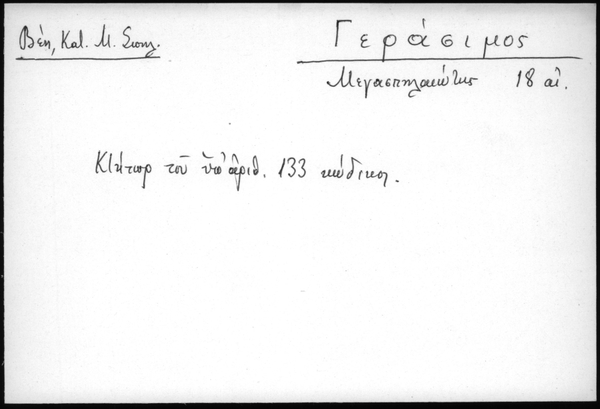 Βέη, Κατ. Μ. Σπηλ.
Γεράσιμος
Μεγασπηλαιώτης 18 αἰ.
Κτήτωρ τοῦ ὑπ' ἀριθ. 133 κώδικος.